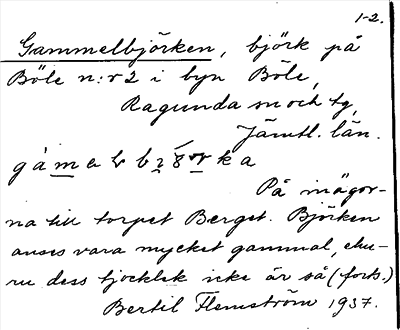 1-2.
Gammelbjörken, björk på
Böle n:r 2 i byn Böle,
Ragunda sn och tg,
Jämtl. län.
På inägor-
na till torpet Berget. Björken
anses vara mycket gammal, ehu-
ru dess tjocklek icke är så (forts.)
Bertil Flemström 1937.